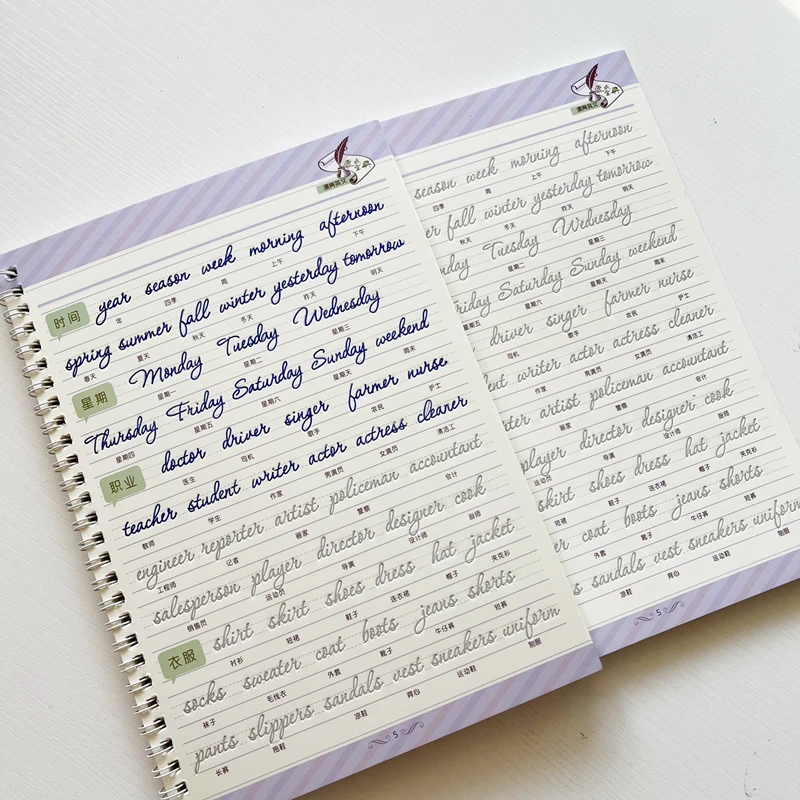 漫画英文
year season week morning afternoon
时间
年 四季 周 上午 下午
spring summer fall winter yesterday tomorrow
春天 夏天 秋天 冬天 昨天 明天
Monday Tuesday Wednesday
星期
星期一 星期二 星期三
Thursday Friday Saturday Sunday weekend
星期四 星期五 星期六 星期天 周末
doctor driver singer farmer nurse
职业
医生 司机 歌手 农民 护士
teacher student writer actor actress cleaner
教师 学生 作家 男演员 女演员 清洁工
engineer reporter artist policeman accountant
工程师 记者 画家 警察 会计
salesperson player director designer cook
销售员 运动员 导演 设计师 厨师
shirt skirt shoes dress hat jacket
衣服
衬衫 短裙 鞋子 连衣裙 帽子 夹克衫
socks sweater coat boots jeans shorts
袜子 毛线衣 外套 靴子 牛仔裤 短裤
pants slippers sandals vest sneakers uniform
长裤 拖鞋 凉鞋 背心 运动鞋 制服
5
season week morning afternoon
四季 周 上午 下午
er fall winter yesterday tomorrow
秋天 冬天 昨天 明天
nday Tuesday Wednesday
星期二 星期三
Friday Saturday Sunday weekend
星期五 星期六 星期天 周末
driver singer farmer nurse
司机 歌手 农民 护士
writer actor actress cleaner
作家 男演员 女演员 清洁工
rter artist policeman accountant
画家 警察 会计
player director designer cook
导演 设计师 厨师
skirt shoes dress hat jacket
短裙 鞋子 连衣裙 帽子 夹克衫
er coat boots jeans shorts
外套 靴子 牛仔裤 短裤
s sandals vest sneakers uniform
凉鞋 背心 运动鞋 制服
5